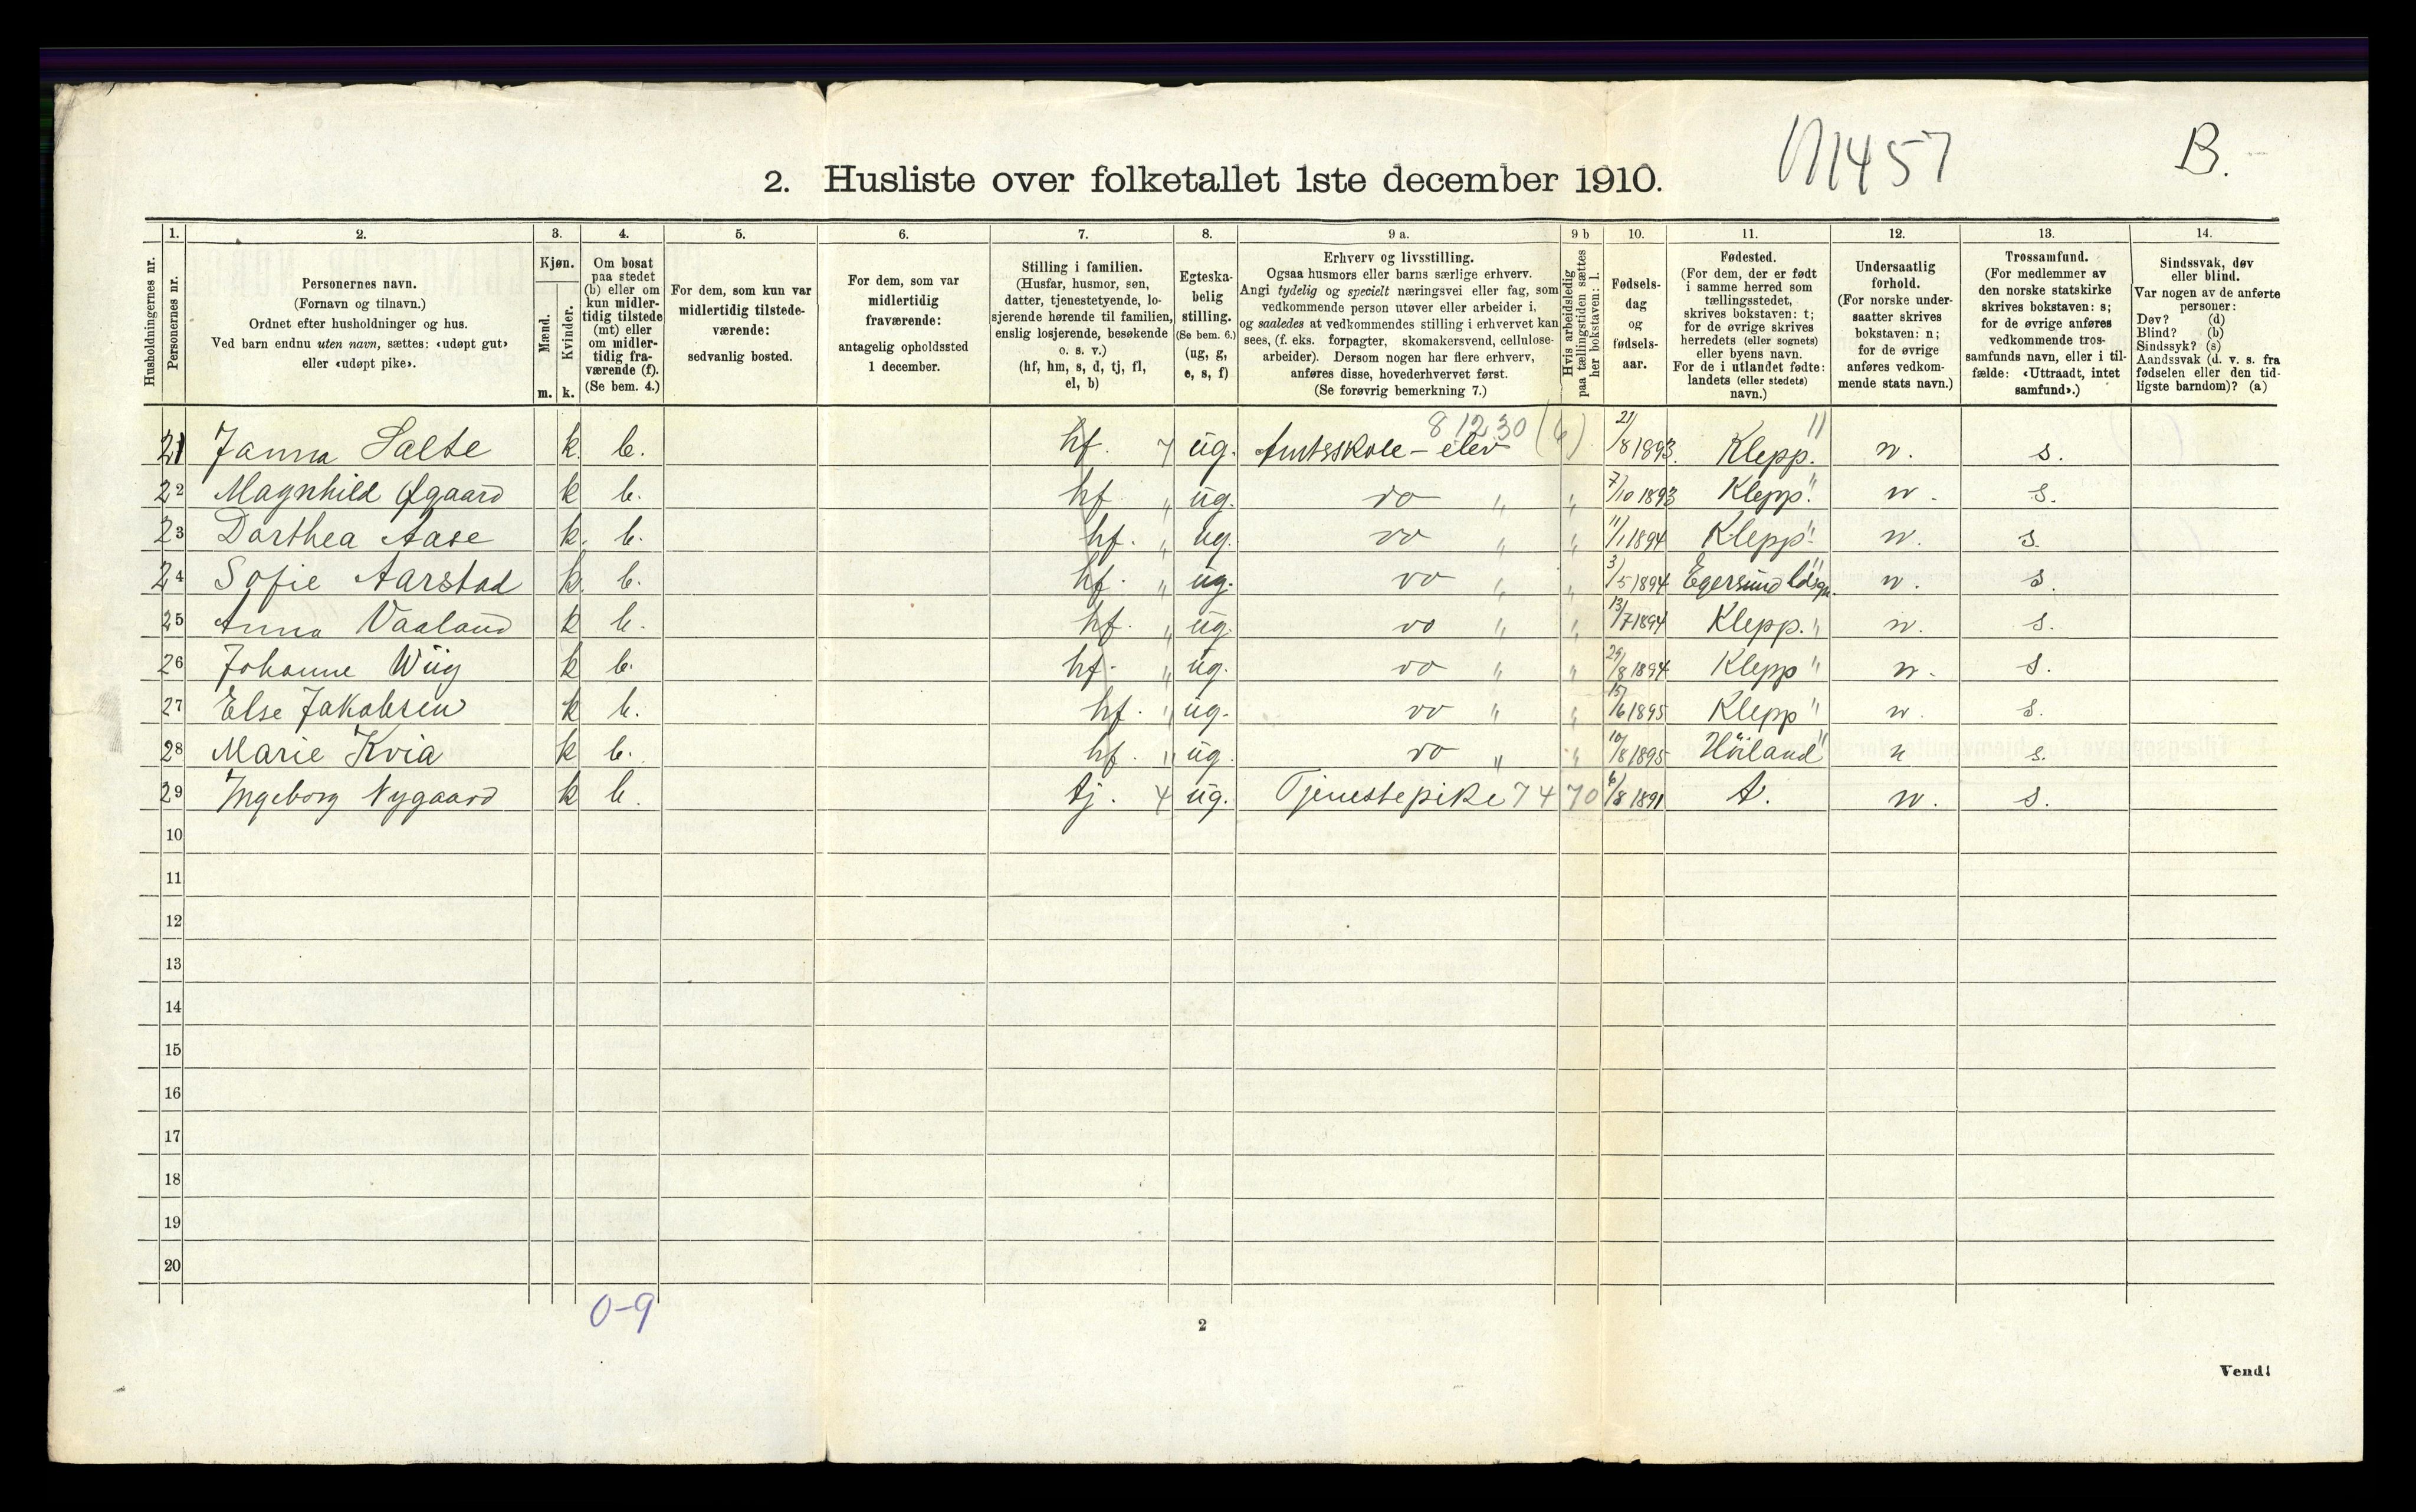 1457
B.
2. Husliste over folketallet 1ste december 1910.
Husholdningernes nr.
1. 2. 3. 4. 5. 6. 7. 8. 9 a. 9 b 10. 11. 12. 13. 14.
Personernes nr.
Personernes navn.
(Fornavn og tilnavn.)
Ordnet efter husholdninger og hus.
Ved barn endnu uten navn, sættes: «udøpt gut»
eller «udøpt pike».
Kjøn.
Mænd.
Kvinder.
m. k.
Om bosat
paa stedet
(b) eller om
kun midler-
tidig tilstede
(mt) eller
om midler-
tidig fra-
værende (f).
(Se bem. 4.)
For dem, som kun var
midlertidig tilstede-
værende:
sedvanlig bosted.
For dem, som var
midlertidig
fraværende:
antagelig opholdssted
1 december.
Stilling i familien.
(Husfar, husmor, søn,
datter, tjenestetyende, lo-
sjerende hørende til familien,
enslig losjerende, besøkende
o. s. v.)
(hf, hm, s, d, tj, fl,
el, b)
Egteska-
belig
stilling.
(Se bem. 6.)
(ug, g,
e, s, f)
Erhverv og livsstilling.
Ogsaa husmors eller barns særlige erhverv.
Angi tydelig og specielt næringsvei eller fag, som
vedkommende person utøver eller arbeider i,
og saaledes at vedkommendes stilling i erhvervet kan
sees, (f. eks. forpagter, skomakersvend, cellulose-
arbeider). Dersom nogen har flere erhverv,
anføres disse, hovederhvervet først.
(Se forøvrig bemerkning 7.)
Hvis arbeidsledig
paa tællingstiden sættes
her bokstaven: l.
Fødsels-
dag
og
fødsels-
aar.
Fødested.
(For dem, der er født
i samme herred som
tællingsstedet,
skrives bokstaven: t;
for de øvrige skrives
herredets (eller sognets)
eller byens navn.
For de i utlandet fødte:
landets (eller stedets)
navn.)
Undersaatlig
forhold.
(For norske under-
saatter skrives
bokstaven: n;
for de øvrige
anføres vedkom-
mende stats navn.)
Trossamfund.
(For medlemmer av
den norske statskirke
skrives bokstaven: s;
for de øvrige anføres
vedkommende tros-
samfunds navn, eller i til-
fælde: «Uttraadt, intet
samfund».)
Sindssvak, døv
eller blind.
Var nogen av de anførte
personer:
Døv? (d)
Blind? (b)
Sindssyk? (s)
Aandssvak (d. v. s. fra
fødselen eller den tid-
ligste barndom)? (a)
8 12 30 (6)
21 Janna Salte k. b. hf. 7 ug. Amtsskole-elev 21/8 1893. Klepp. " n. s.
22 Magnhild Øgaard k b. hf " ug. do " " 7/10 1893 Klepp. " n. s.
23 Dorthea Aase k. b. hf. " ug. do " " 11/1 1894 Klepp " n. s.
24 Sofie Aarstad k. b. hf. " ug. do " " 3/5 1894 Egersund ldsgn. " n. s.
25 Anna Vaaland k b. hf. " ug. do " " 13/7 1894 Klepp. " n. s.
26 Johanne Wiig k b. hf. " ug. do " " 29/8 1894 Klepp " n. s.
27 Else Jakobsen k b. hf. " ug. do " " 15/6 1895 Klepp " n. s.
28 Marie Kvia k b. hf. " ug. do " " 10/8 1895 Höiland " n s.
29 Ingeborg Nygaard k b. tj. 4 ug. Tjenestepike 74 70 6/8 1891 t. n. s.
10
11
12
13
14
15
16
17
18
19
20
0-9
2
Vend!